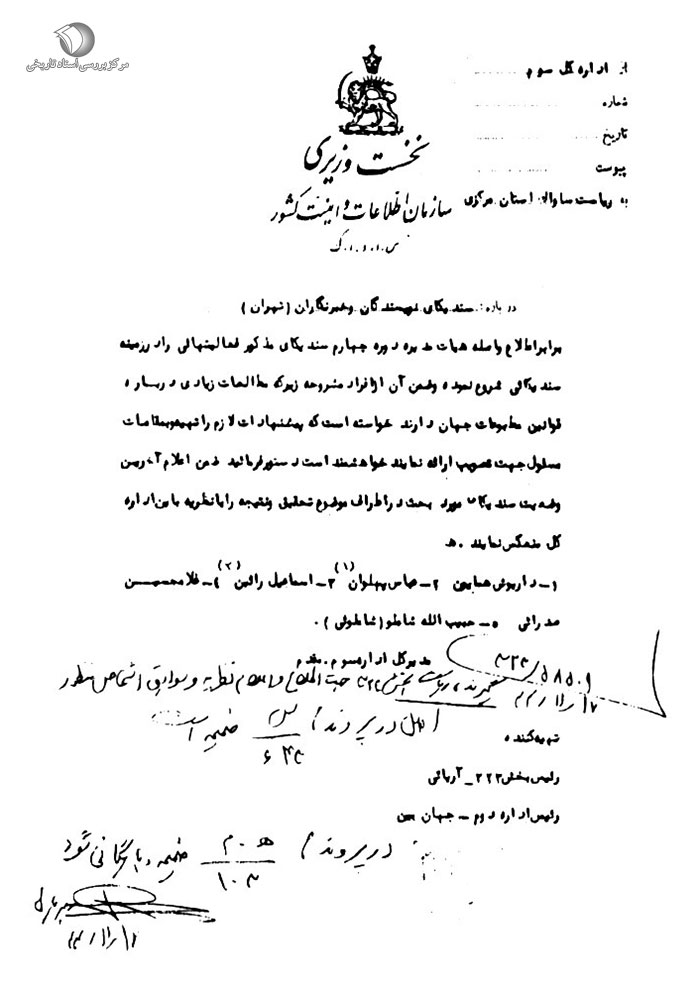 مرکز بررسی اسناد تاریخی
از اداره کل سوم
شماره
تاریخ
پیوست
به ریاست ساواک استان مرکزی
نخست وزیری
سازمان اطلاعات و امنیت کشور
س.ا.و.ا.ک
درباره: سندیکای نویسندگان وخبرنگاران (تهران)
برابراطلاع واصله هیات مدیره دوره چهارم سندیکای مذکور فعالیتهائی رادرزمینه
سندیکائی شروع نموده وضمن آن ازافراد مشروحه زیرکه مطالعات زیادی درباره
قوانین مطبوعات جهان دارند خواسته است که پیشنهادات لازم راتهیه وبمقامات
مسئول جهت تصویب ارائه نمایند خواهشمند است دستورفرمائید ضمن اعلام آخرین
وضعیت سندیکای مورد بحث دراطراف موضوع تحقیق ونتیجه رابانظریه باین اداره
کل منعکس نمایند .ه
۱- داریوش همایون ۲- عباس پهلوان(۱) ۳- اسماعیل رائین(۲) ۴- غلامحسین
صدرائی ۵- حبیب الله شاملو (شاملوئی) .
مدیرکل اداره سوم . مقدم
جهت اطلاع و اعلام نظریه و سوابق اشخاص منظور
اصل در پرونده س ضمیمه است
تهیه کننده
رئیس بخش ۲۲۳- آریائی
رئیس اداره دوم - جهان بین
در پرونده ه.م ضمیمه و بایگانی شود